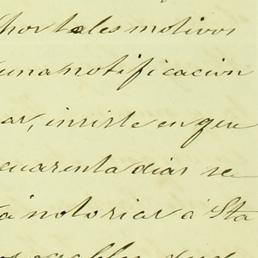 por tales motivos
una notificacion
ar, insiste en que
cuarenta dias se
notoriar á Sta